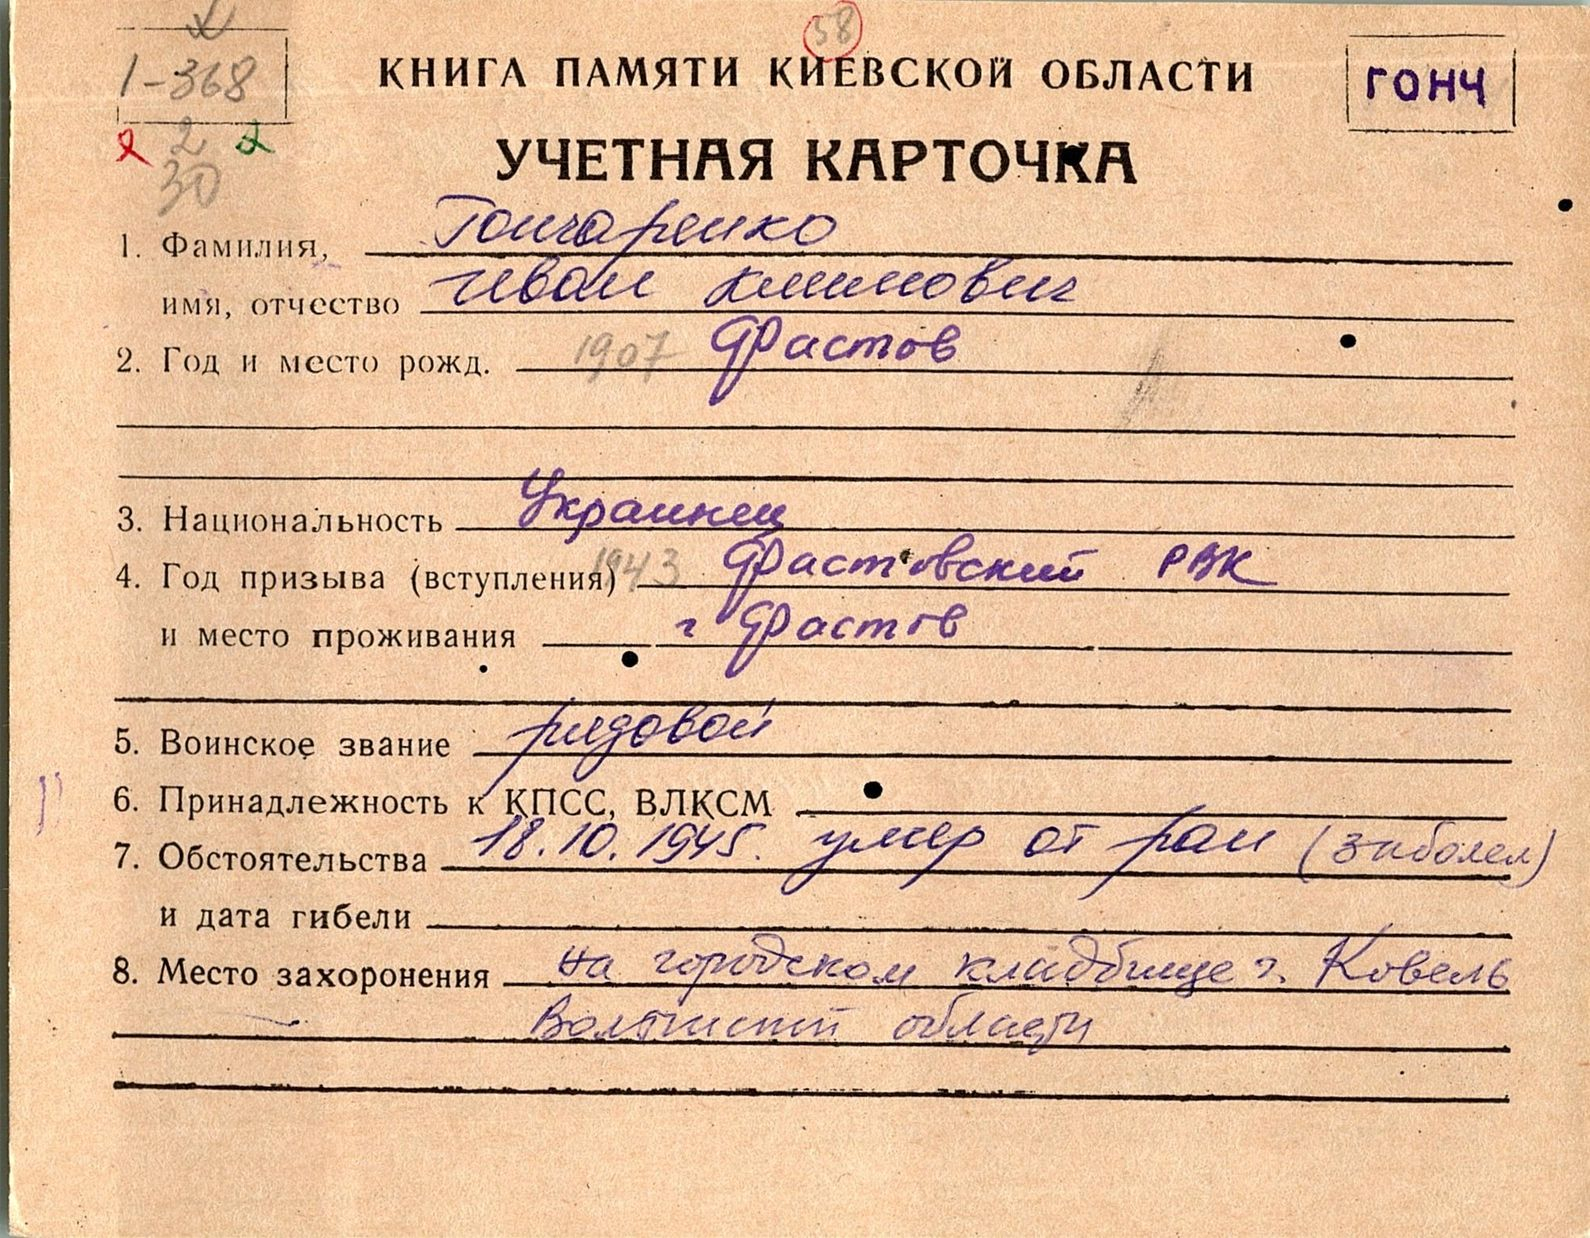 58
1-368
КНИГА ПАМЯТИ КИЕВСКОЙ ОБЛАСТИ
ГОНЧ
2
30
УЧЕТНАЯ КАРТОЧКА
1. Фамилия, Гончаренко
имя, отчество Иван Климович
2. Год и место рожд. 1907 Фастов
3. Национальность Украинец
4. Год призыва (вступления) 1943 Фастовский РВК
и место проживания г Фастов
5. Воинское звание рядовой
6. Принадлежность к КПСС, ВЛКСМ
7. Обстоятельства 18.10.1945. умер от ран (заболел)
и дата гибели
8. Место захоронения на городском кладбище г. Ковель
Волынской области